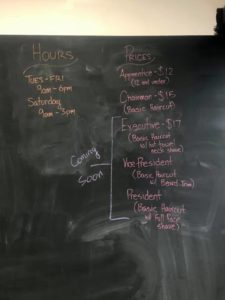 Hours
Tues-Fri
9am-6pm
Saturday
9am-3pm
Prices
Apprentice-$12
(12 and under)
Chairman-$15
(Basic Haircut)
Executive-$17
(Basic Haircut
w/ hot towel
neck shave)
Vice-President
(Basic Haircut
w/ Beard Trim)
President
(Basic Haircut
w/ Full Face
shave)
Coming
Soon